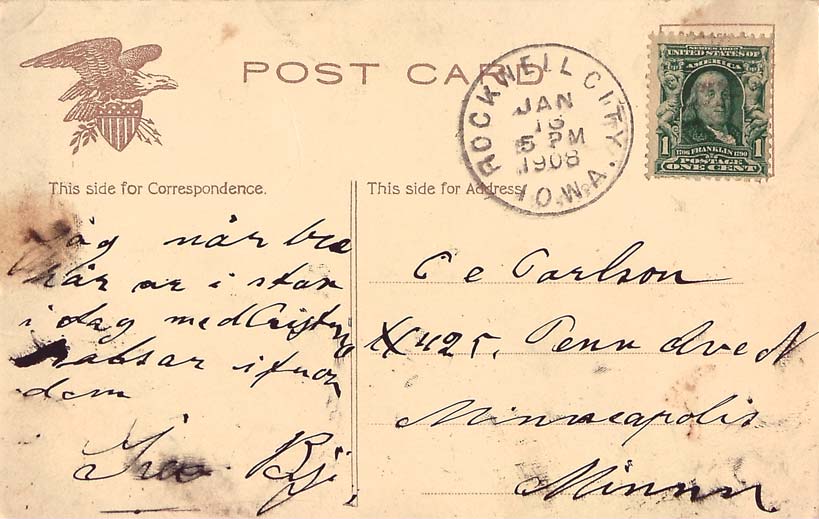 POST CARD
ROCKWELL CITY. IOWA
JAN
16
5 PM
1908
SERIES 1902
UNITED STATES OF
AMERICA
1706 FRANKLIN 1790
1 POSTAGE 1
ONE CENT
This side for Correspondence.
Jåg når bra
här ar i stan
i dag med
i fron
dem
This side for Address
C e Carlson
425. Penn Ave N
Minneapolis
Minnn.